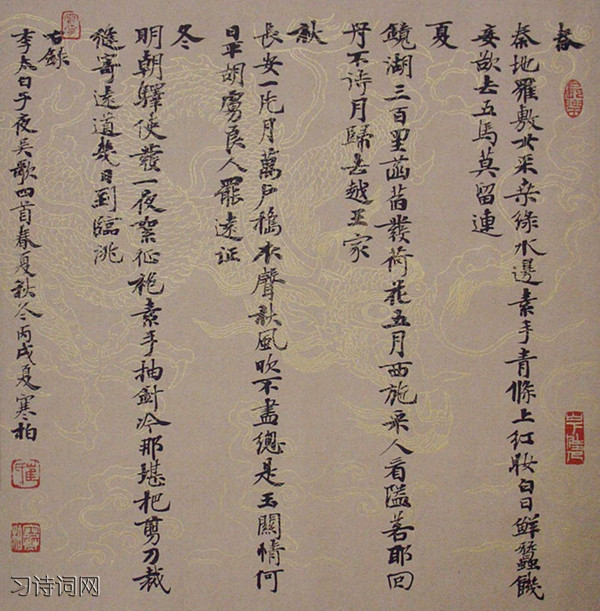 春
秦地羅敷女采桑綠水邊素手青條上紅妝白日鮮蠶饑
妾欲去五馬莫留連
夏
鏡湖三百里菡萏發荷花五月西施采人看隘若耶回
舟不待月歸去越王家
秋
長安一片月萬戶搗衣聲秋風吹不盡總是玉關情何
日平胡虜良人罷遠征
冬
明朝驛使發一夜絮征袍素手抽針冷那堪把剪刀裁
縫寄遠道幾日到臨洮
右錄
李太白子夜吳歌四首春夏秋冬丙戌夏寒柏
习诗词网